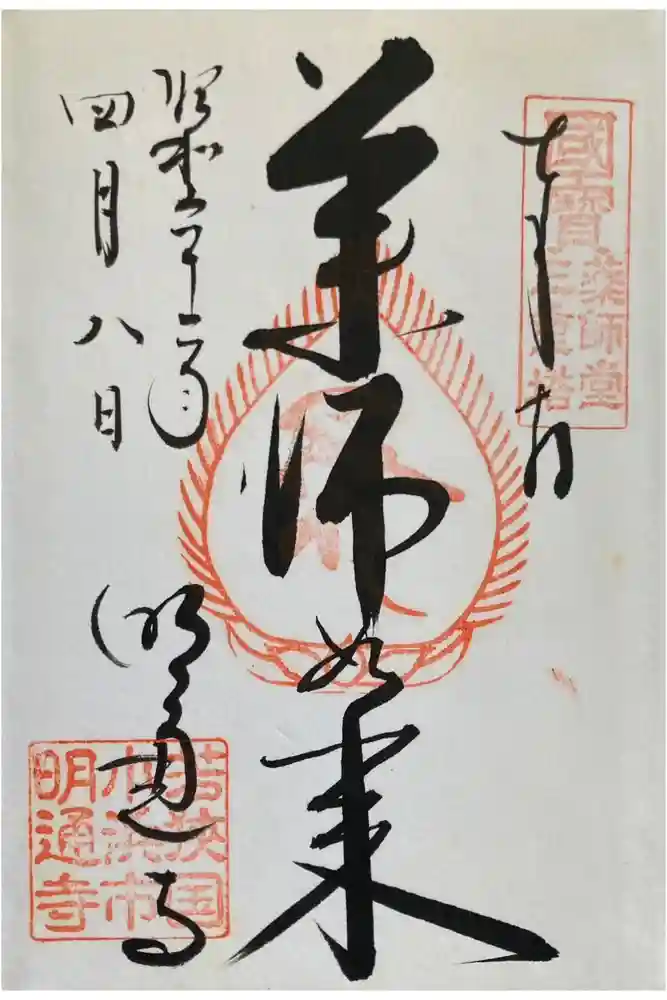 奉拝
國寶
薬師堂
三重塔
薬師如来
昭和五十
四月八日
明通寺
若狭国
小浜市
明通寺